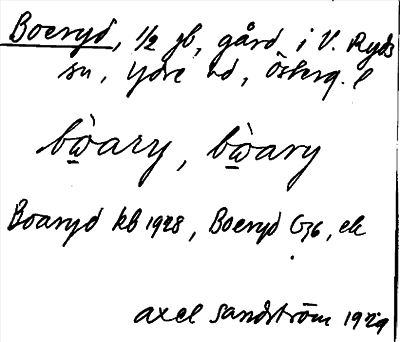 Boeryd, 1/2 gb, gård i V. Ryds
sn, Ydre hd, Österg. l
bὼ̲ary, bὼ̲ary
Boaryd kb 1928, Boeryd G36, ek
axel sandström 1929